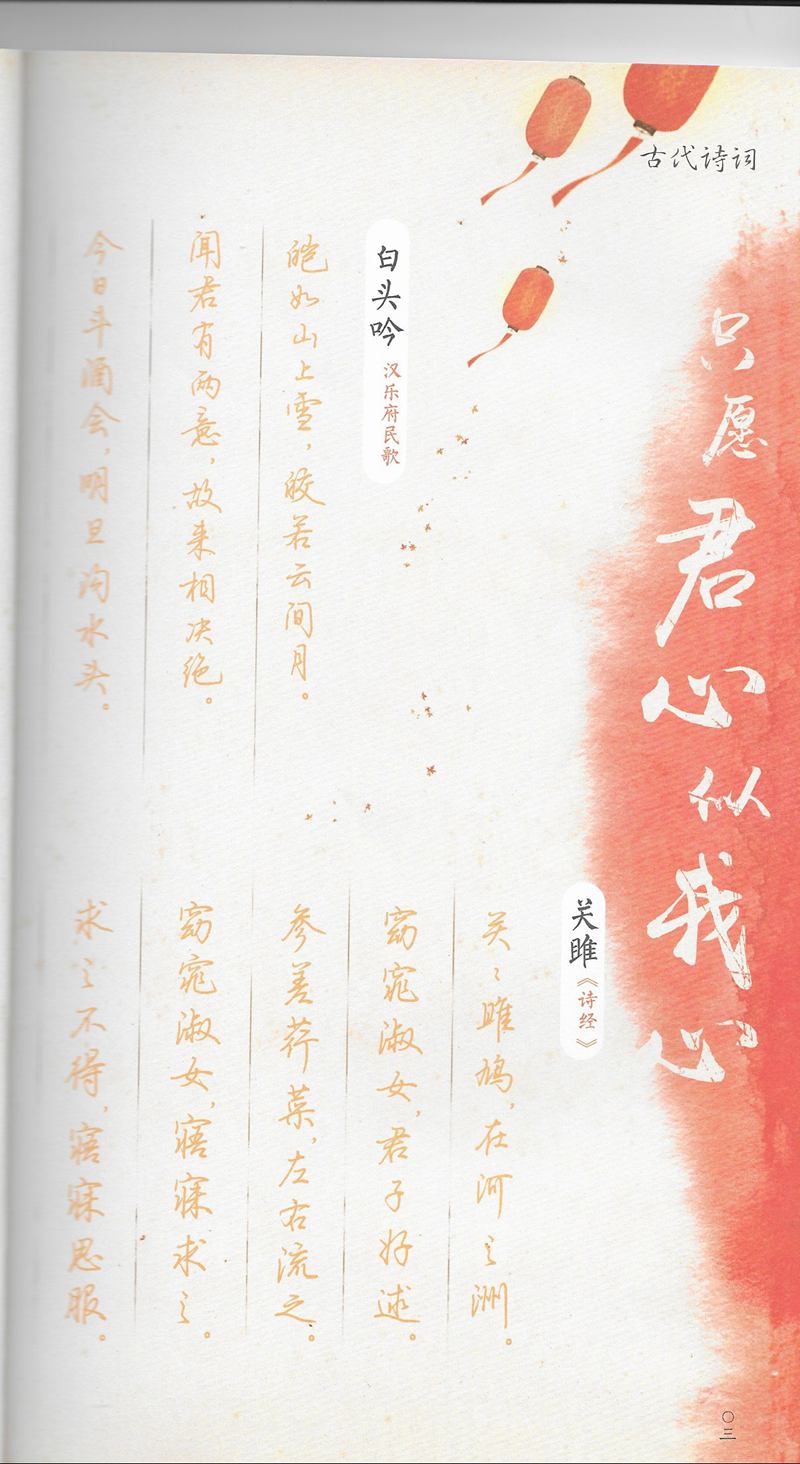 古代诗词
只愿君心似我心
关雎《诗经》
关〻雎鸠，在河之洲。
窈窕淑女，君子好逑。
参差荇菜，左右流之。
窈窕淑女，寤寐求之。
求之不得，寤寐思服。
白头吟 汉乐府民歌
皑如山上雪，皎若云间月。
闻君有两意，故来相决绝。
今日斗酒会，明旦沟水头。
〇三